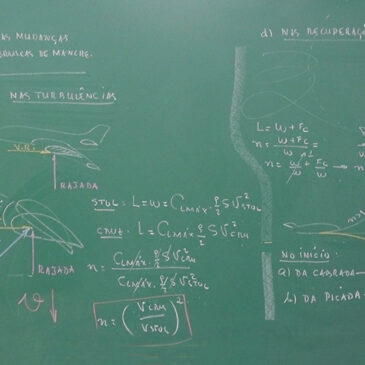 AS MUDANÇAS
BRUSCAS DE MANCHE.
NAS TURBULÊNCIAS
V.R.
RAJADA
RAJADA
STOL: L=W=CLMÁX.ρ/2 S V²STOL
CRUZ: L=CLMÁX.ρ/2 S V²CRU
n = CLMÁX.ρ/2 S V²CRU / CLMÁX.ρ/2 S V²STOL
n = (VCRU / VSTOL)²
d) NAS RECUPERAÇ
L = W + Fc
n = W+Fc / W =
n = W/W + Fc/W → n
NO INÍCIO:
a) DA CABRADA
b) DA PICADA